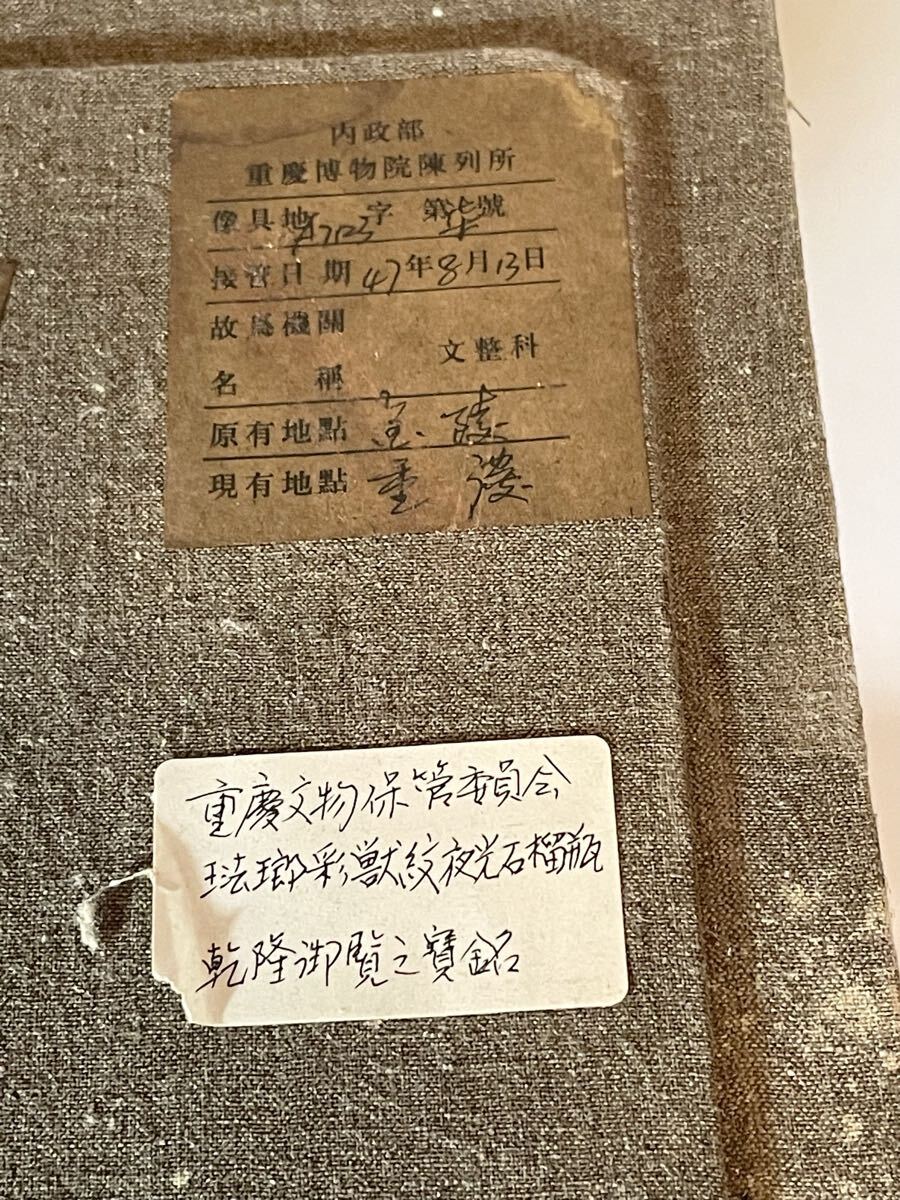 内政部
重慶博物院陳列所
傢具地 字 第柒號
接管日期 47年8月13日
故為機關
文整科
名稱
原有地點
現有地點 重慶
重慶文物保管委員会
琺瑯彩獣紋夜光石榴瓶
乾隆御覧之寶銘